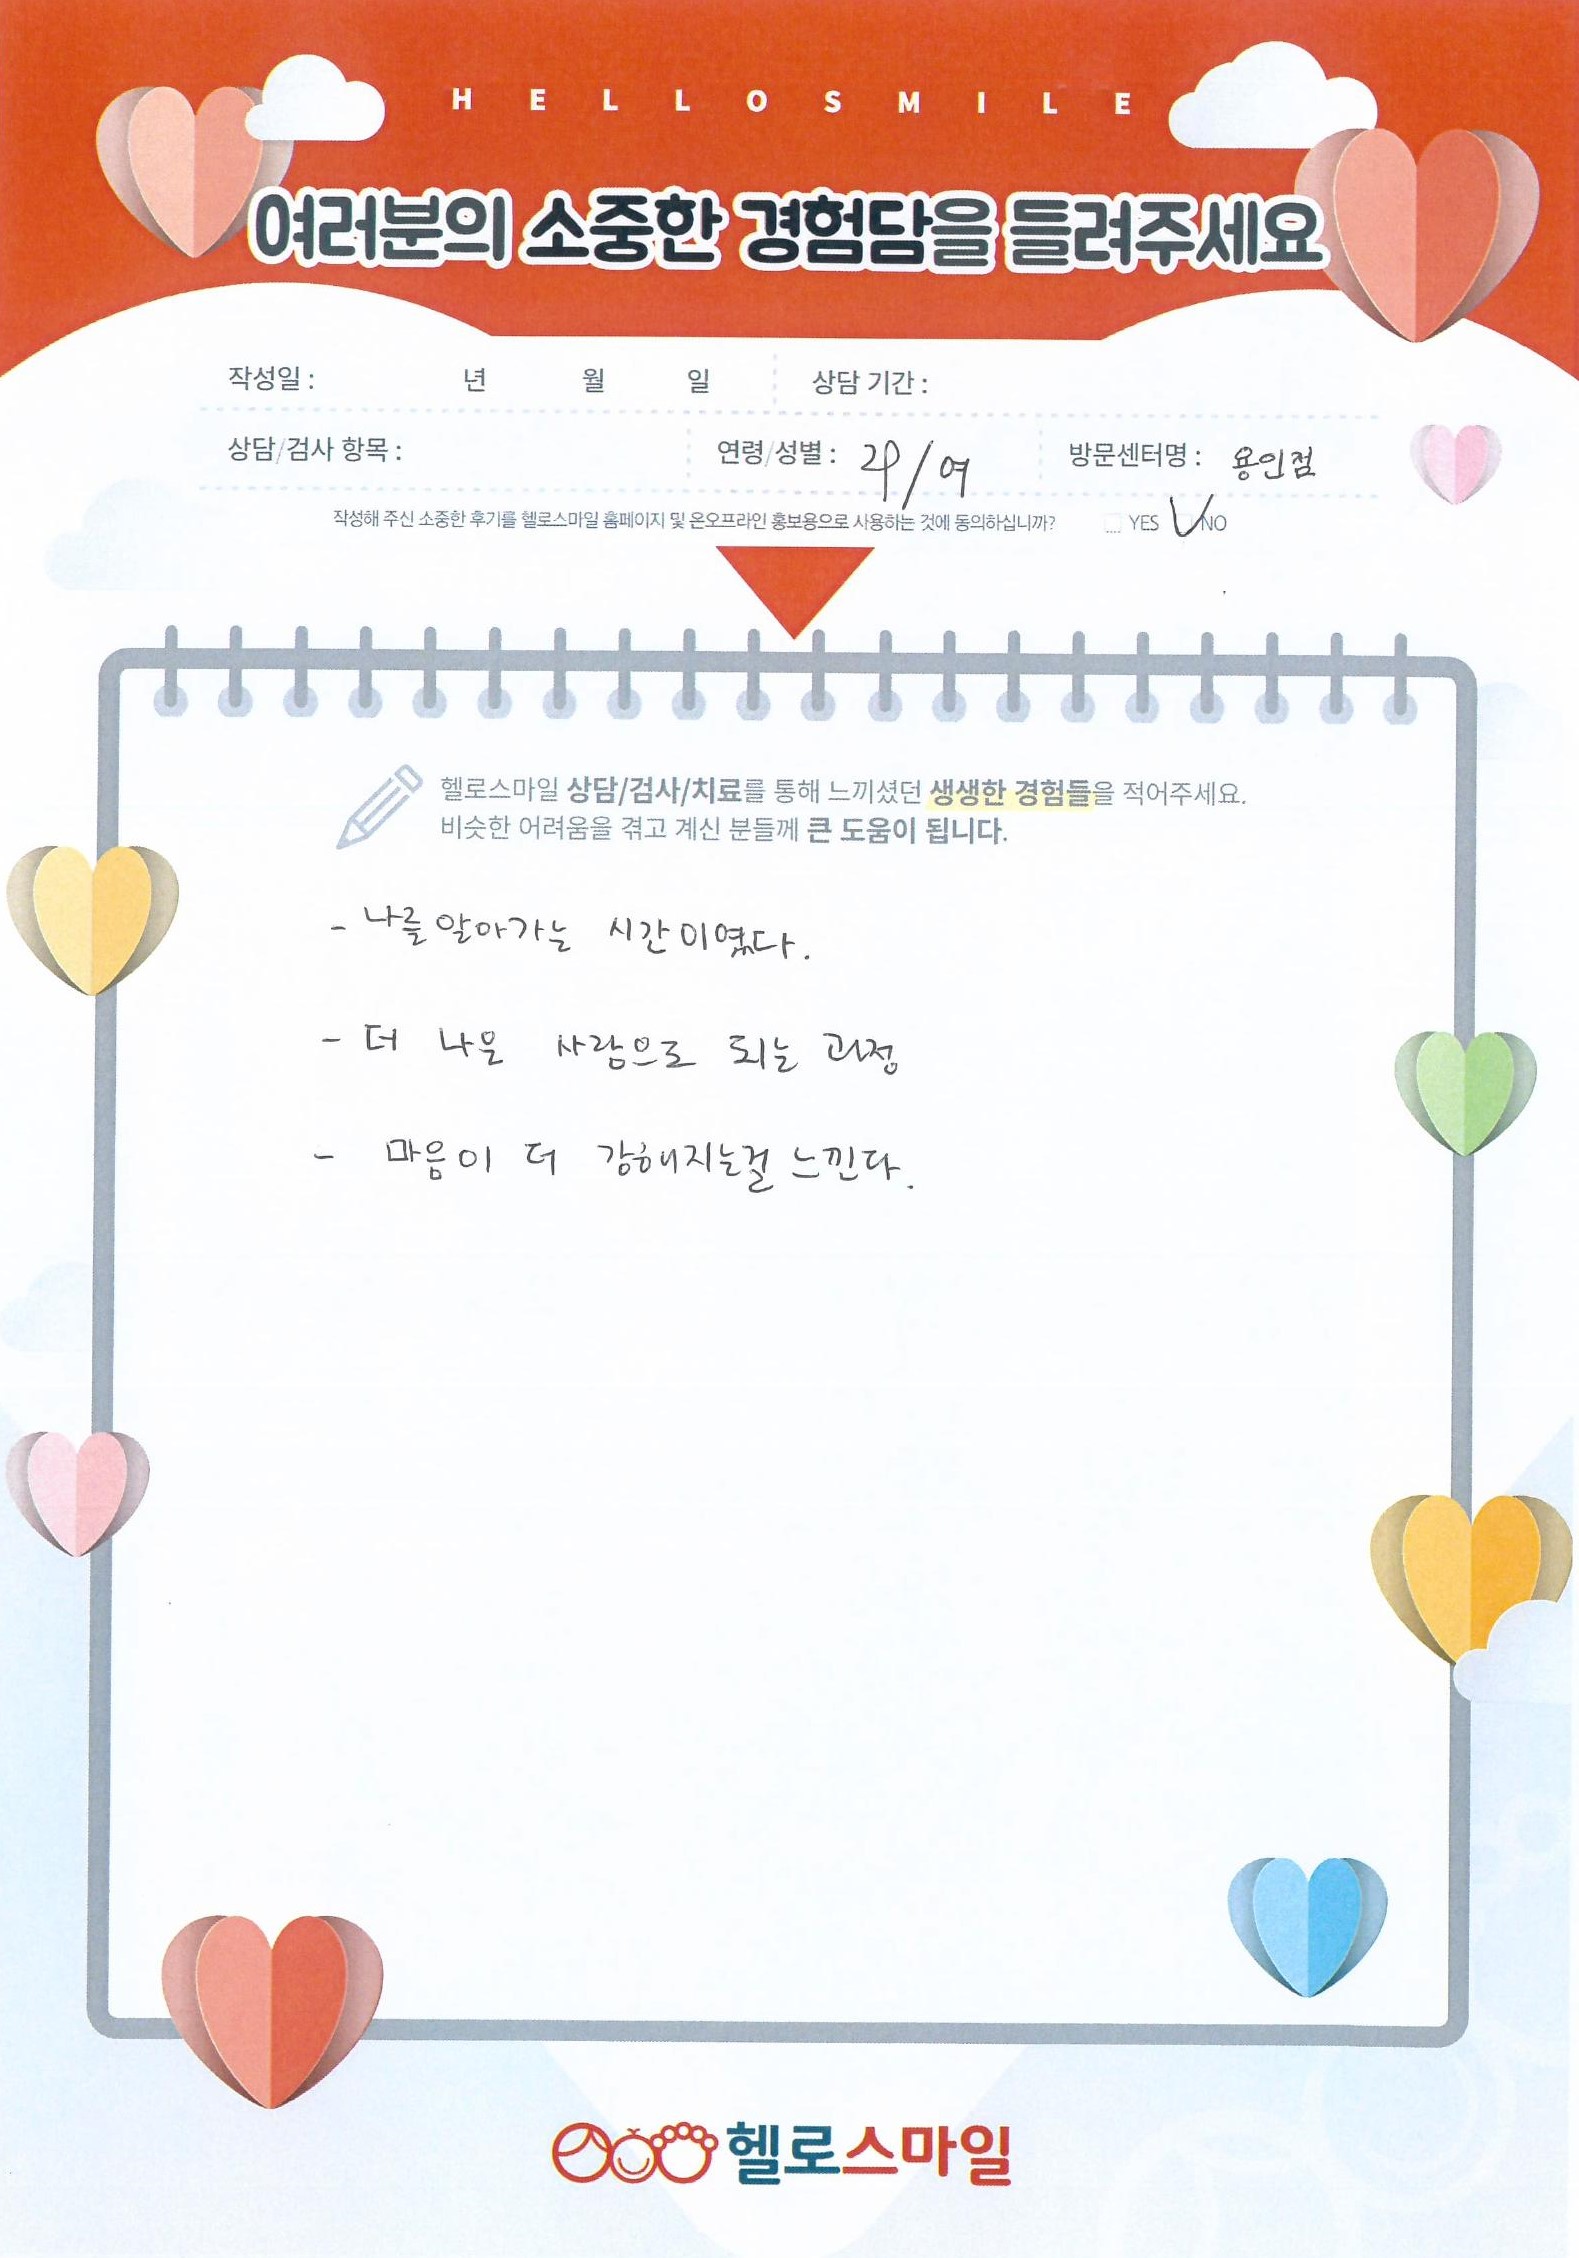 HELLOSMILE
여러분의 소중한 경험담을 들려주세요
작성일 : 년 월 일 상담 기간 :
상담/검사 항목 : 연령/성별 : 29/여 방문센터명 : 용인점
작성해 주신 소중한 후기를 헬로스마일 홈페이지 및 온오프라인 홍보용으로 사용하는 것에 동의하십니까? YES NO
헬로스마일 상담/검사/치료를 통해 느끼셨던 생생한 경험들을 적어주세요.
비슷한 어려움을 겪고 계신 분들께 큰 도움이 됩니다.
- 나를 알아가는 시간이였다.
- 더 나은 사람으로 되는 과정
- 마음이 더 강해지는걸 느낀다.
헬로스마일